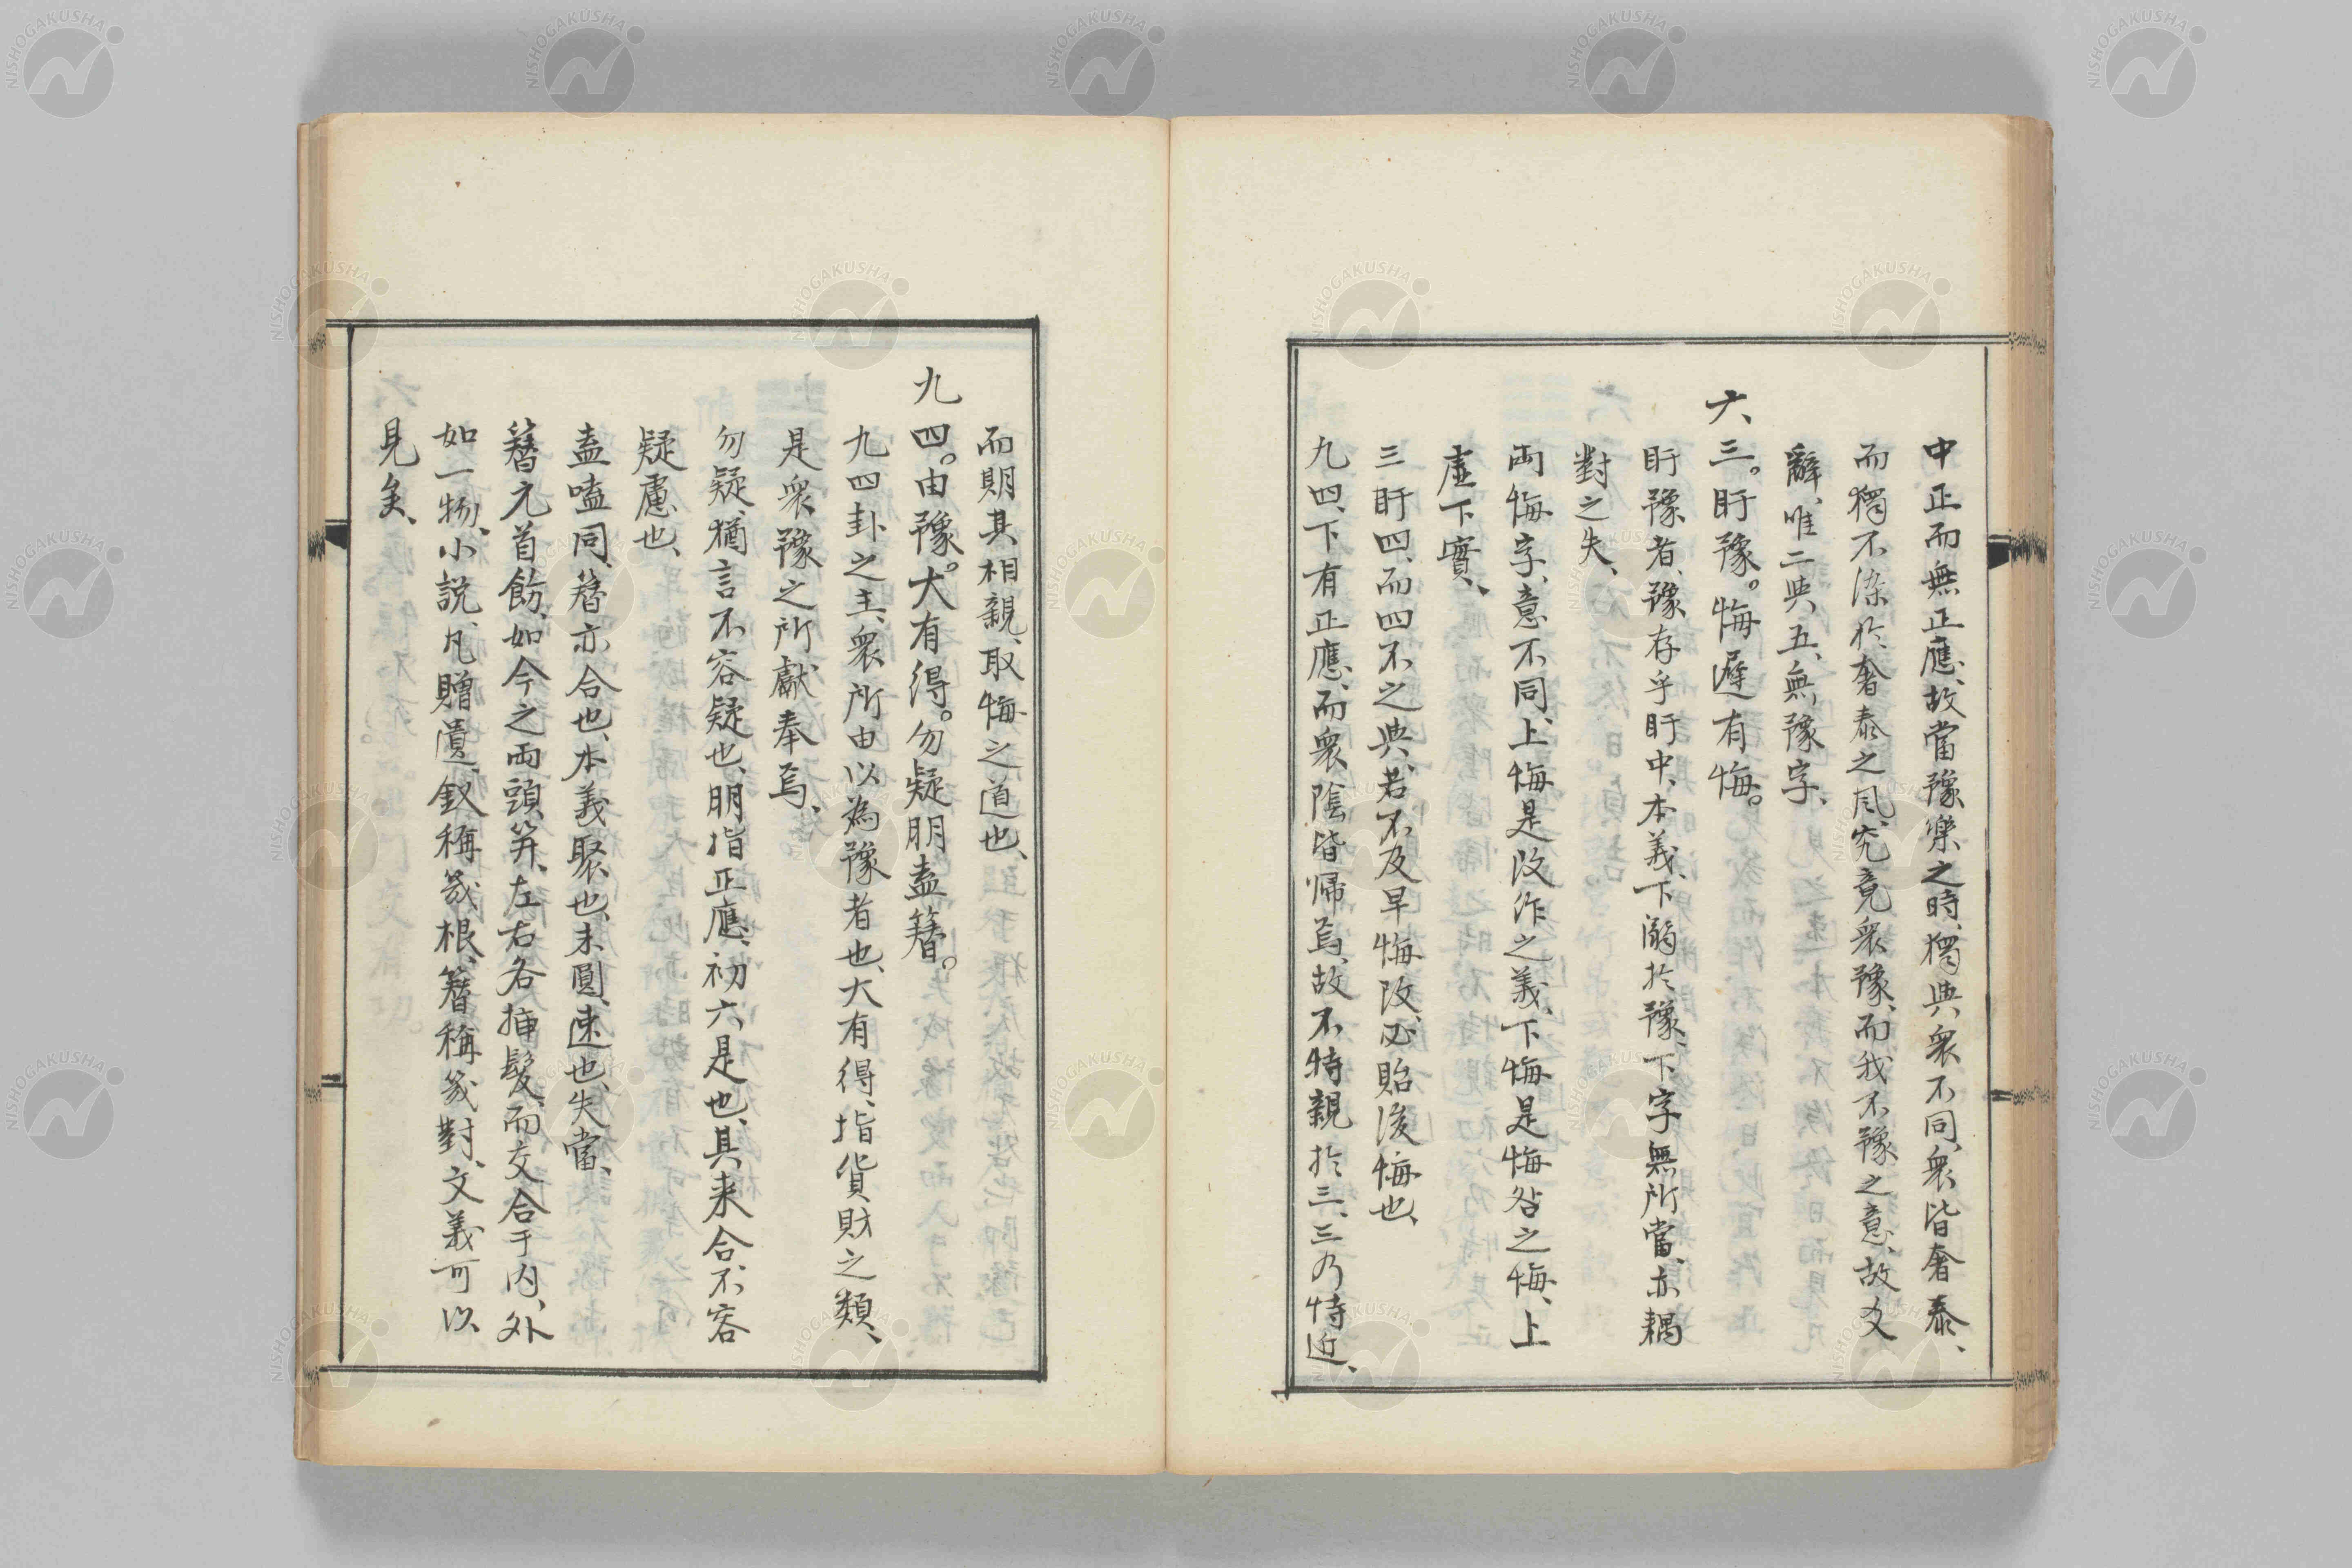 中正而無正應、故當豫樂之時、獨與衆不同、衆皆奢泰、
而獨不染於奢泰之風、究竟衆豫、而我不豫之意、故爻
辭、唯二與五、無豫字、
六三。盱豫。悔遲有悔。
盱豫者、豫存乎盱中、本義、下溺於豫、下字無所當、亦耦
對之失、
兩悔字、意不同、上悔是改作之義、下悔是悔咎之悔、上
虛下實、
三盱四、而四不之與、若不及早悔改、必貽後悔也、
九四、下有正應、而衆陰皆歸焉、故不特親於三、三乃特近、
而期其相親、取悔之道也、
九四。由豫。大有得。勿疑朋盍簪。
九四卦之主、衆所由以為豫者也、大有得、指貨財之類、
是衆豫之所獻奉焉、
勿疑、猶言不容疑也、朋指正應、初六是也、其来合、不容
疑慮也、
盍嗑同、簪亦合也、本義聚也、未圓、速也、失當、
簪元首飾、如今之兩頭笄、左右各挿髮、而交合于内、外
如一物、小説、凡贈遺、釵稱幾根、簪稱幾對、文義可以
見矣、
NISHOGAKUSHA